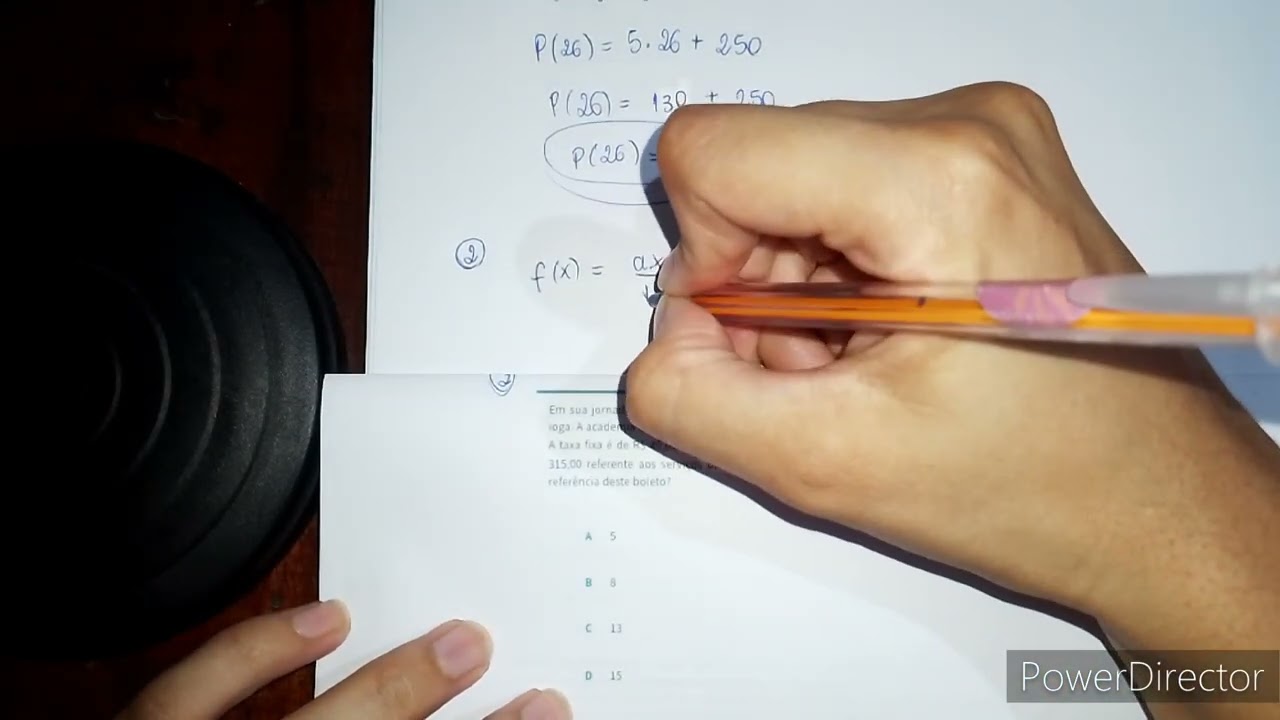 P(26) = 5.26 + 250
P(26) = 130 + 250
P(26) =
2 f(x) = ax
2
Em sua
ioga. A
A taxa fixa é de
315,00 referente aos
referência deste boleto?
A 5
B 8
C 13
D 15
PowerDirector